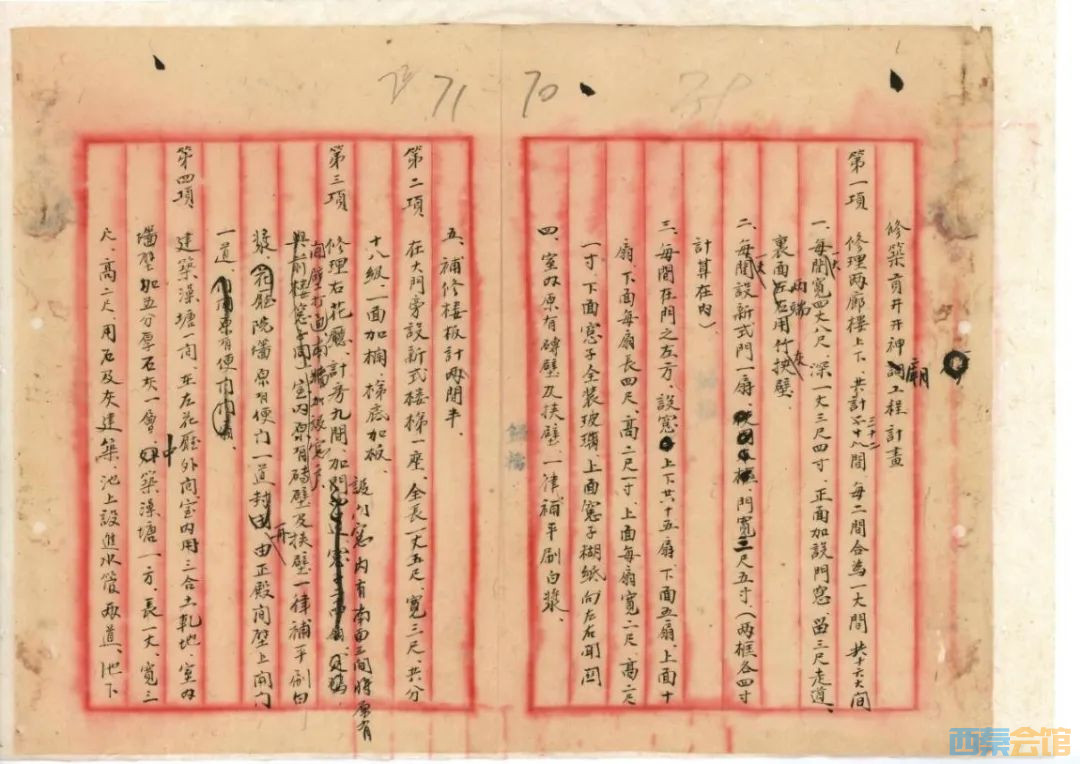 71
70
修築貢井井神廟工程計畫
第一項 修理兩廊樓上下、共計三十二間 每二間合為一大間 共十六大間
一、每一大間寬四丈八尺、深一丈三尺四寸、正面加設門窓、留三尺走道、
裏面兩端用竹灰扶壁。
二、每一大間設新式門一扇、門寬三尺五寸、(兩框各四寸
計算在內)
三、每間在門之左方、設窓上下共十五扇、下面五扇、上面十
扇、下面每扇長四尺、高二尺一寸、上面每扇寬二尺、高二尺
一寸、下面窓子全裝玻璃、上面窓子糊紙向左右開關
四、室內原有磚壁及扶壁、一律補平刷白漿。
五、補修樓板計兩間半。
第二項 在大門旁設新式樓梯一座、全長一丈五尺、寬三尺、共分
十八級、一面加欄、梯底加板、
第三項 修理右花廳、計房九間、加開
設門窓內有南面三間將原有
間壁打通、南墻加設窓戶、
室內原有磚壁及扶壁一律補平刷白
漿、花廳院墻原有便门一道封再由正殿間壁上開门
一道、
第四項 建築澡塘一间在左花廳外间室內用三合土軋地、室內
墻壁加五分厚石灰一層、中築澡塘一方、長一丈、寬三
尺、高二尺、用石及灰建築、池上設進水管兩道、池下
西秦会馆